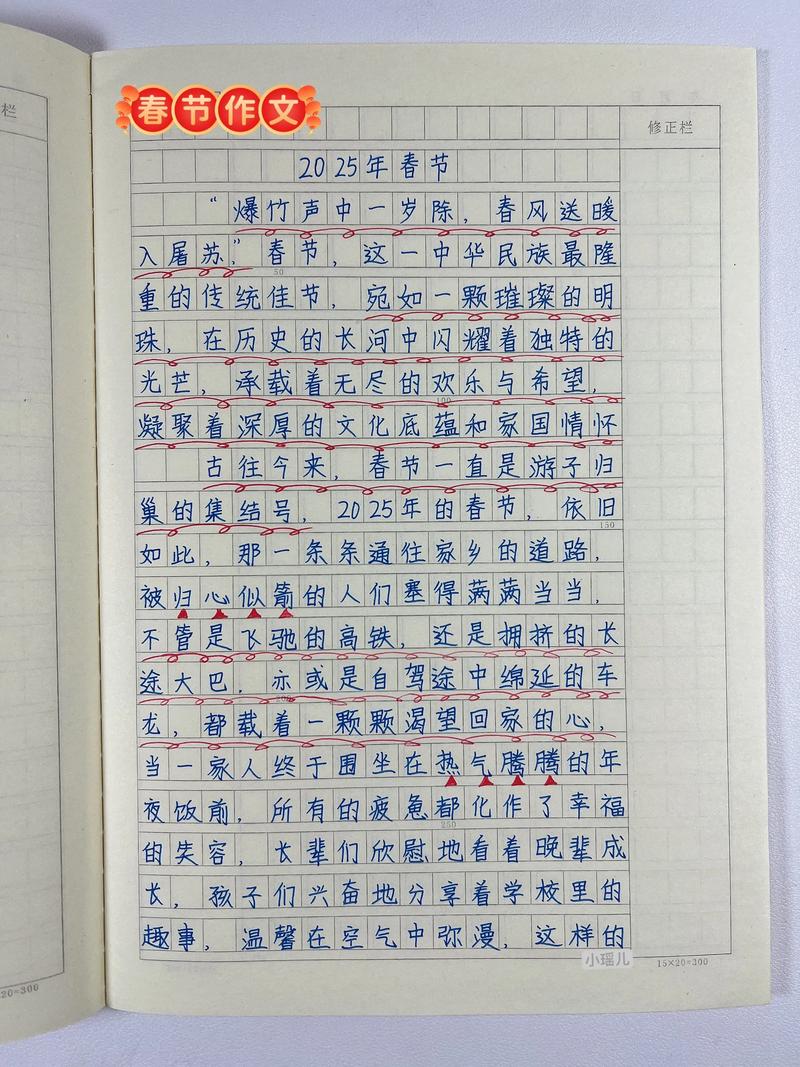 春节作文
栏
修正栏
2025年春节
“爆竹声中一岁除，春风送暖
入屠苏。”春节，这一中华民族最隆
50
重的传统佳节，宛如一颗璀璨的明
珠，在历史的长河中闪耀着独特的
光芒，承载着无尽的欢乐与希望，
100
凝聚着深厚的文化底蕴和家国情怀
古往今来，春节一直是游子归
巢的集结号，2025年的春节，依旧
150
如此，那一条条通往家乡的道路，
被归心似箭的人们塞得满满当当，
不管是飞驰的高铁，还是拥挤的长
途大巴，亦或是自驾途中绵延的车
200
龙，都载着一颗颗渴望回家的心，
当一家人终于围坐在热气腾腾的年
夜饭前，所有的疲惫都化作了幸福
250
的笑容，长辈们欣慰地看着晚辈成
长，孩子们兴奋地分享着学校里的
趣事，温馨在空气中弥漫，这样的
小瑶儿
15×20=300
20=300